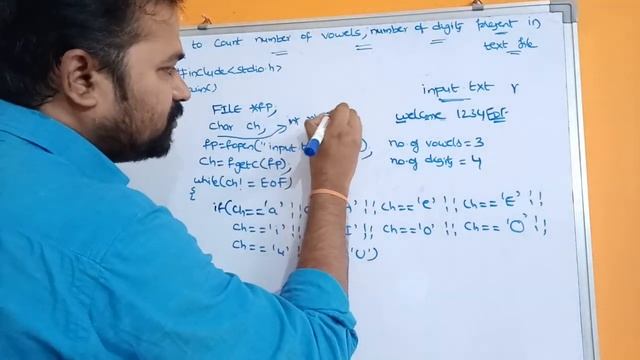 to count number of vowels, number of digits present in
text file
#include<stdio.h>
input txt r
FILE *fp,
welcome 1234 EOF
char ch,
fp=fopen("input t
no.of vowels = 3
ch= fgetc(fp),
no.of digits = 4
while(ch! = EOF)
{
if(ch=='a' ¦¦ ¦¦ ch=='e' ¦¦ ch=='E' ¦¦
ch=='i' ¦¦ I' ¦¦ ch=='o' ¦¦ ch=='O' ¦¦
ch=='u' 'U')